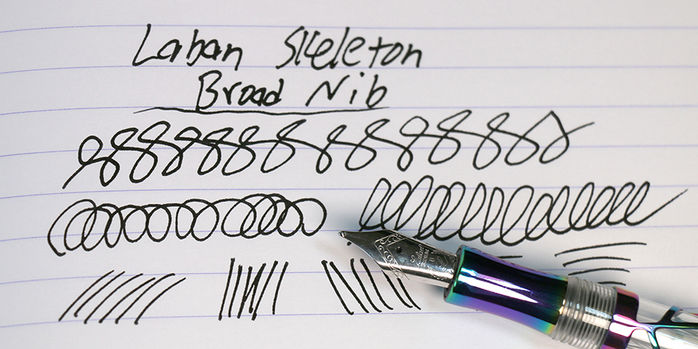 Laban Skeleton
Broad Nib